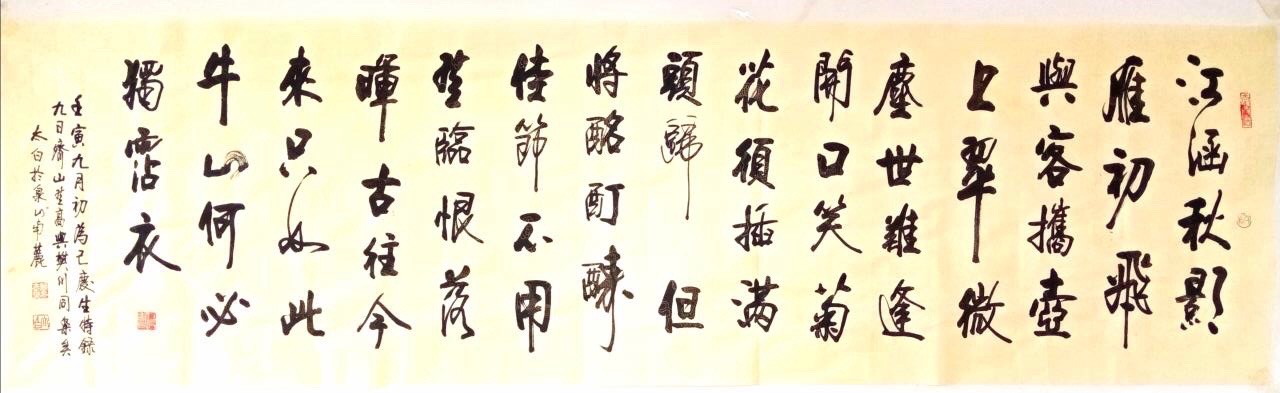 江涵秋影
雁初飛
與客攜壺
上翠微
塵世難逢
開口笑菊
花須插滿
頭歸但
將酩酊酬
佳節不用
登臨恨落
暉古往今
來只如此
牛山何必
獨霑衣
壬寅九月初為己慶生特録
九日齊山登高與樊川同矣
太白於泉山南麓